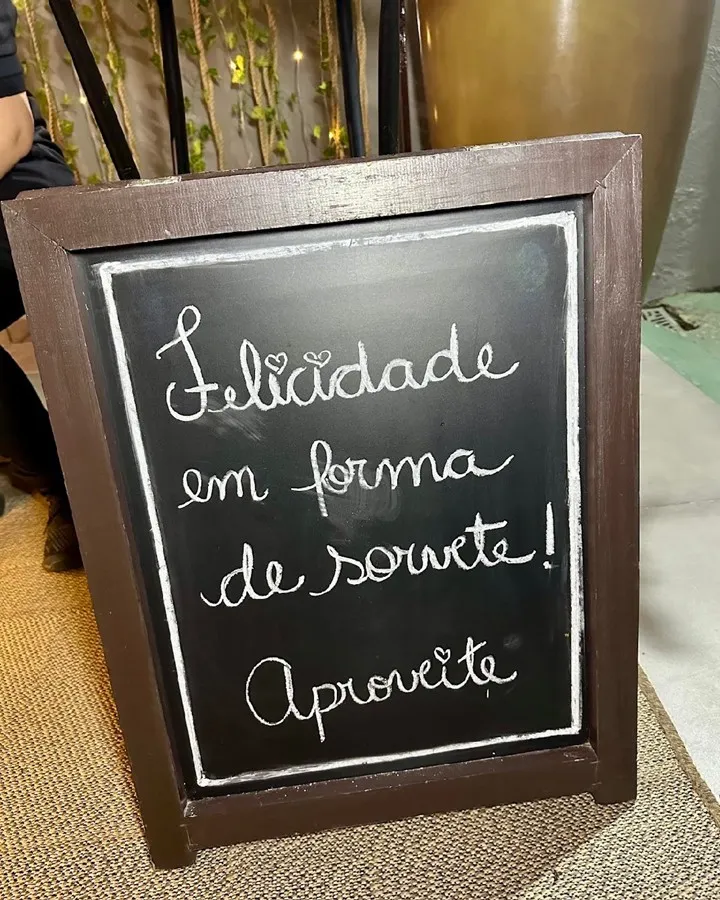 Felicidade
em forma
de sorvete!
Aproveite